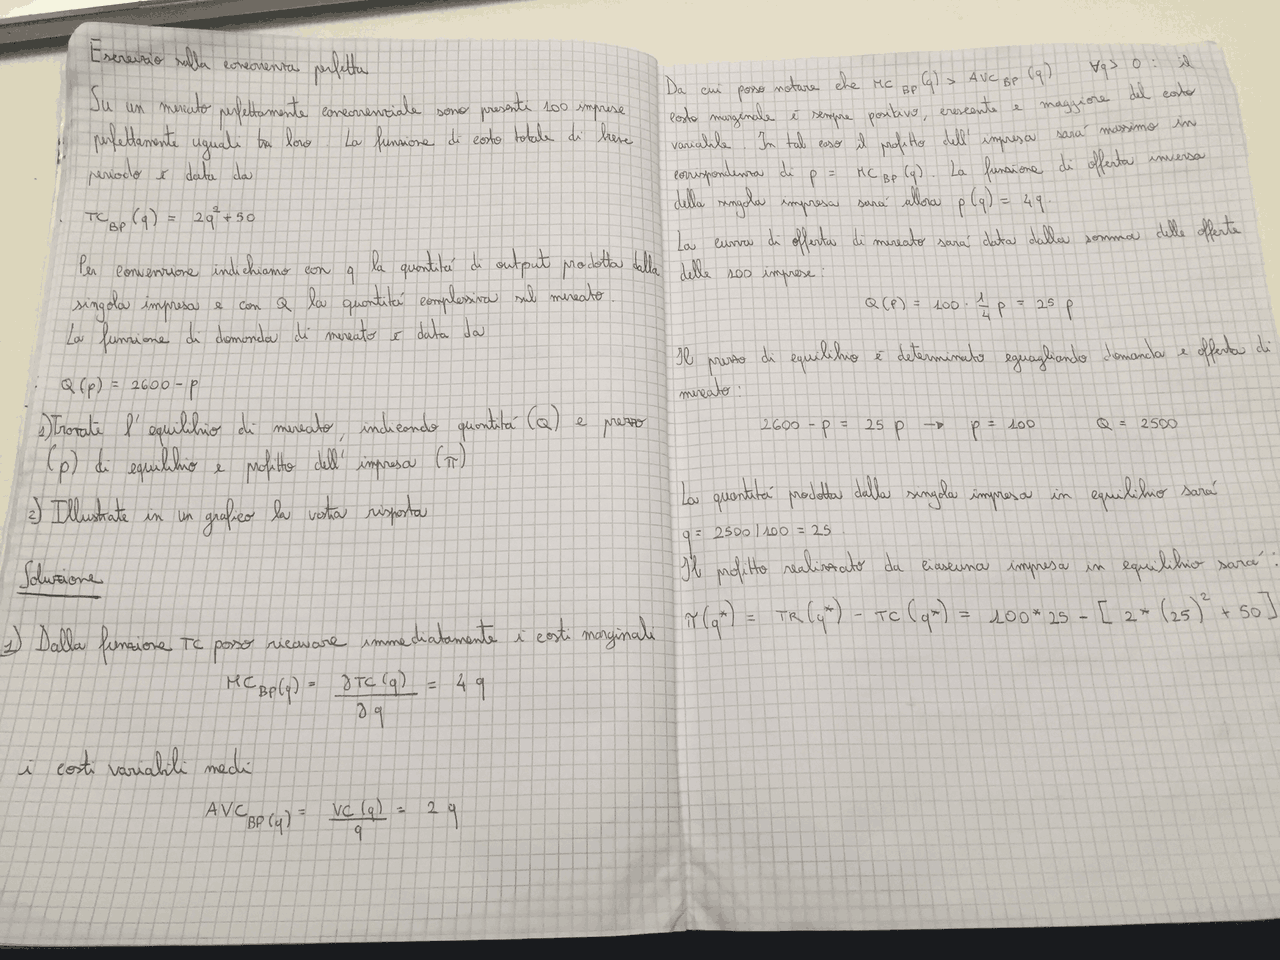 Esercizio sulla concorrenza perfetta
Su un mercato perfettamente concorrenziale sono presenti 100 imprese
perfettamente uguali tra loro. La funzione di costo totale di breve
periodo è data da
TC_BP(q) = 2q² + 50
Per convenzione indichiamo con q la quantitá di output prodotta dalla
singola impresa e con Q la quantitá complessiva sul mercato.
La funzione di domanda di mercato è data da
Q(p) = 2600 - p
1) Trovate l'equilibrio di mercato, indicando quantitá (Q) e prezzo
(p) di equilibrio e profitto dell'impresa (π)
2) Illustrate in un grafico la vostra risposta
Soluzione
1) Dalla funzione TC posso ricavare immediatamente i costi marginali
MC_BP(q) = ∂TC(q)/∂q = 4q
i costi variabili medi
AVC_BP(q) = VC(q)/q = 2q
Da cui posso notare che MC_BP(q) > AVC_BP(q) ∀q > 0 : il
costo marginale é sempre positivo, crescente e maggiore del costo
variabile. In tal caso il profitto dell'impresa sará massimo in
corrispondenza di p = MC_BP(q). La funzione di offerta inversa
della singola impresa sará allora p(q) = 4q.
La curva di offerta di mercato sará data dalla somma delle offerte
delle 100 imprese:
Q(P) = 100 · 1/4 p = 25 p
Il prezzo di equilibrio é determinato eguagliando domanda e offerta di
mercato:
2600 - p = 25 p → p = 100 Q = 2500
La quantitá prodotta dalla singola impresa in equilibrio sará
q = 2500/100 = 25.
Il profitto realizzato da ciascuna impresa in equilibrio sará:
π(q*) = TR(q*) - TC(q*) = 100*25 - [2*(25)² + 50]